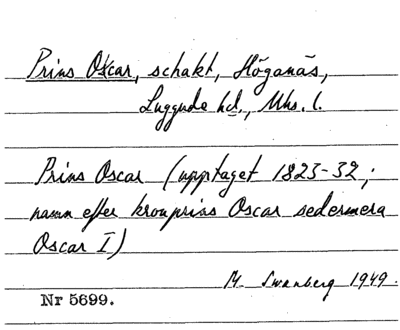 Prins Oscar, schakt, Höganäs,
Luggude hd., Mhs. l.
Prins Oscar (upptaget 1823-32;
namn efter kronprins Oscar sedermera
Oscar I)
M. Swanberg 1949.
Nr 5699.